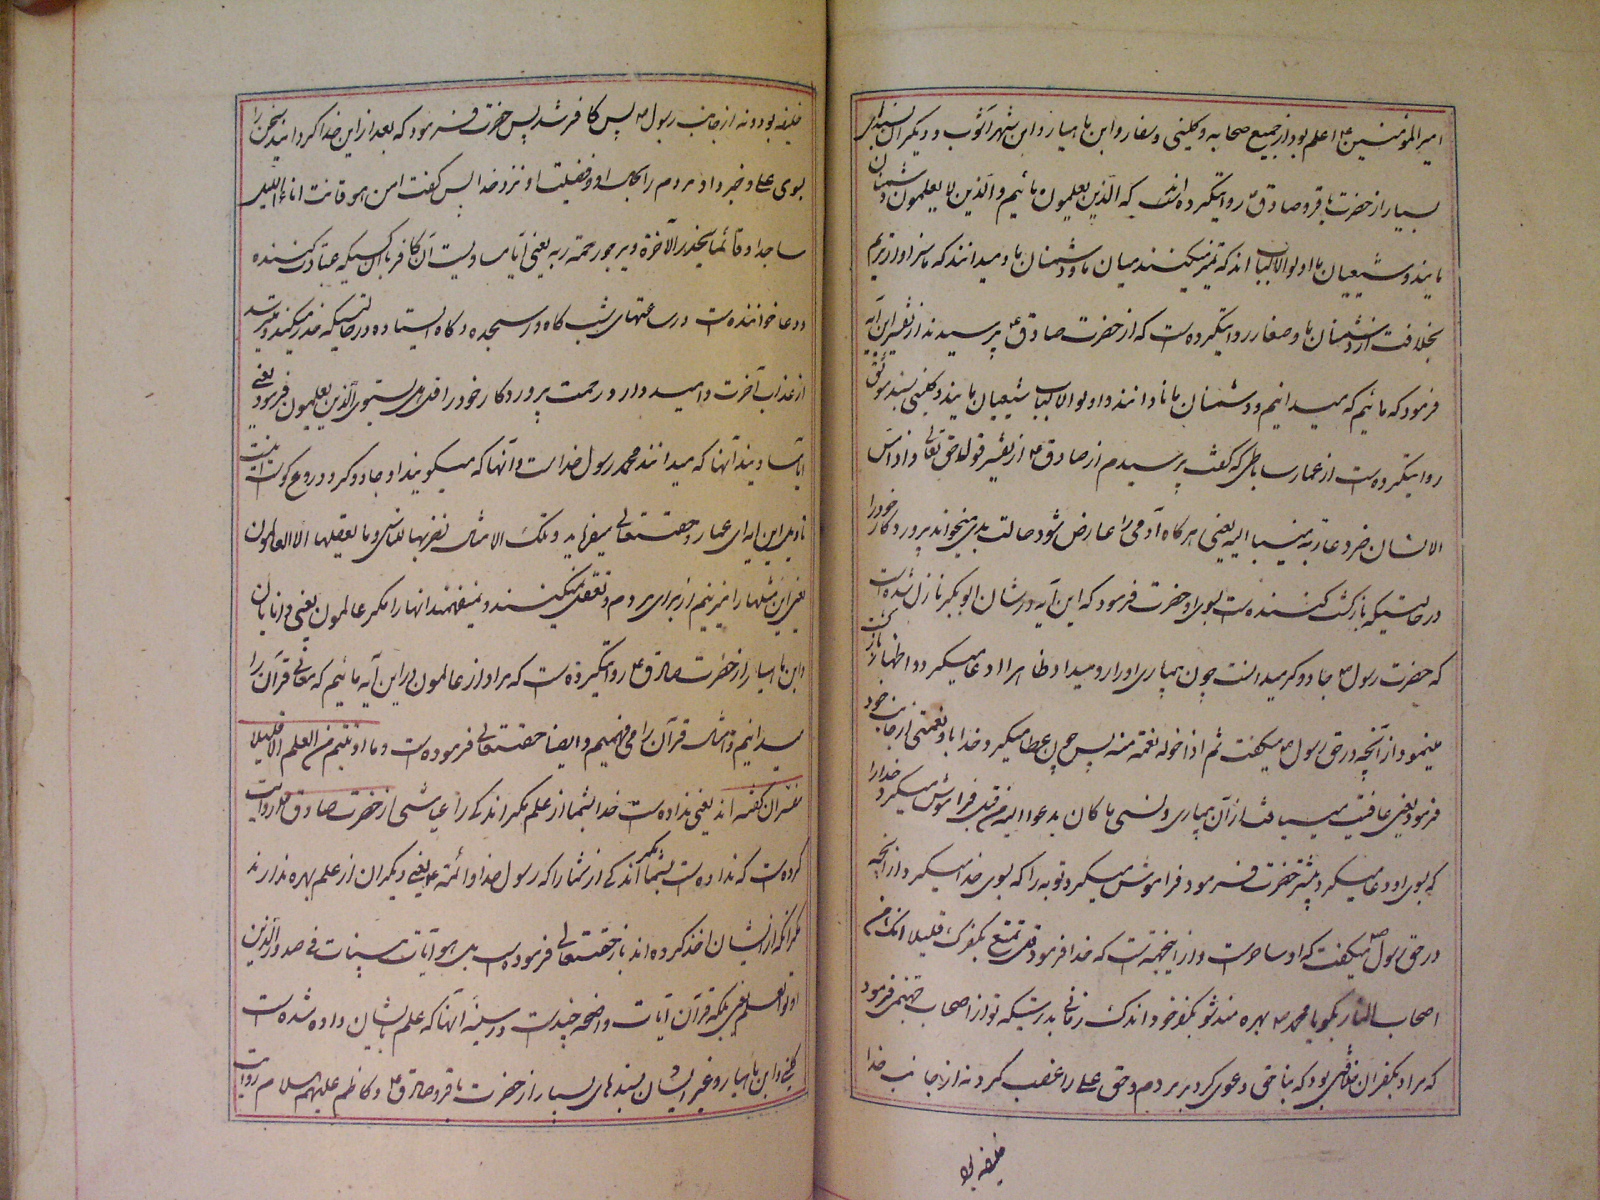 امیر المؤمنین ع اعلم بود از جمیع صحابه و کلینی و صفار و ابن ماهیار و ابن شهر آشوب و دیگران بسندهای
بسیار از حضرت باقر و صادق ع روایتکرده‌اند که الذین یعلمون مائیم و الذین لا یعلمون دشمنان
مایند و شیعیان ما اولو الالباب اند که تمیز میکنند میان ما و دشمنان ما و میدانند که ما سزاوارتریم
بخلافت از دشمنان ما و صفار روایتکرده است که از حضرت صادق ع پرسیدند از تفسیر این آیه
فرمود که مائیم که میدانیم و دشمنان ما نادانند و اولو الالباب شیعیان مایند و کلینی بسند موثق
روایتکرده است از عمار ساباطی که گفت پرسیدم از صادق ع از تفسیر قول حق تعالی و اذا مس
الانسان ضر دعا ربه منیبا الیه یعنی هرگاه آدمی را عارض شود حالت بدی میخواند پروردگار خود را
در حالتیکه بازگشت کننده است بسوی او حضرت فرمود که این آیه در شان ابوبکر نازل شده است
که حضرت رسول ص جادوگر میدانست چون بیماری او را رو میداد ظاهرا دعا میکرد و اظهار بازگشت
مینمود از آنچه در حق رسول ص میگفت ثم اذا خوله نعمة منه پس چون عطا میکرد خدا باو نعمتی از جانب خود
فرمود یعنی عافیت مییافت از آن بیماری و نسی ما کان یدعوا الیه من قبل فراموش میکرد خدا را
که بسوی او دعا میکرد پیشتر حضرت فرمود فراموش میکرد توبه را که بسوی خدا میکرد از آنچه
در حق رسول ص میگفت که او ساحر است و از اینجهت است که خدا فرمود قل تمتع بکفرک قلیلا انک من
اصحاب النار بگو یا محمد ص بهره مند شو بکفر خود اندک زمانی بدرستیکه تو از اصحاب جهنمی فرمود
که مراد بکفر آن خلافتی بود که بناحق دعوی کرد بر مردم و حق علی را غصب کرد نه از جانب خدا
خلیفه بود
خلیفه بود و نه از جانب رسول ص پس کافر شد پس حضرت فرمود که بعد از این خدا گردانید سخن را
بسوی علی و خبر داد مردم را بحال او و فضیلت او نزد خدا پس گفت امن هو قانت اناء اللیل
ساجدا و قائما یحذر الآخرة و یرجو رحمة ربه یعنی آیا مساویست آن کافر با آن کسیکه عبادت کننده
و دعا خواننده است در ساعتهای شب گاه در سجده و گاه ایستاده در حالتیکه حذر میکند و میترسد
از عذاب آخرت و امیدوار و رحمت پروردگار خود را قل هل یستوی الذین یعلمون فرمود یعنی
آیا مساویند آنها که میدانند محمد رسول خداست و آنها که میگویند او جادوگر و دروغ گوست اینست
تاویل این آیه ای عمار و حقتعالی میفرماید و تلک الامثال نضربها للناس و ما یعقلها الا العالمون
یعنی این مثلها را میزنیم از برای مردم و تعقل نمیکنند و نمیفهمند انها را مگر عالمون یعنی دانایان
و ابن ماهیار از حضرت صادق ع روایتکرده است که مراد از عالمون در این آیه مائیم که معانی قرآن را
میدانیم و امثال قرآن را می فهمیم و ایضا حقتعالی فرموده است و ما اوتیتم من العلم الا قلیلا
مفسران گفته اند یعنی نداده است خدا بشما از علم مگر اندکی را عیاشی از حضرت صادق ع روایت
کرده است که نداده است بشما مگر اندکی از شما را که رسول خدا و ائمه ع یعنی دیگران از علم بهره ندارند
مگر آنکه از ایشان اخذ کرده اند باز حقتعالی فرموده است بل هو آیات بینات فی صدور الذین
اوتوا العلم یعنی بلکه قرآن آیات واضحه چند است در سینه آنها که علم بایشان داده شده است
کلینی و ابن ماهیار و غیر ایشان بسندهای بسیار از حضرت باقر و صادق ع و کاظم علیهم السلام روایت